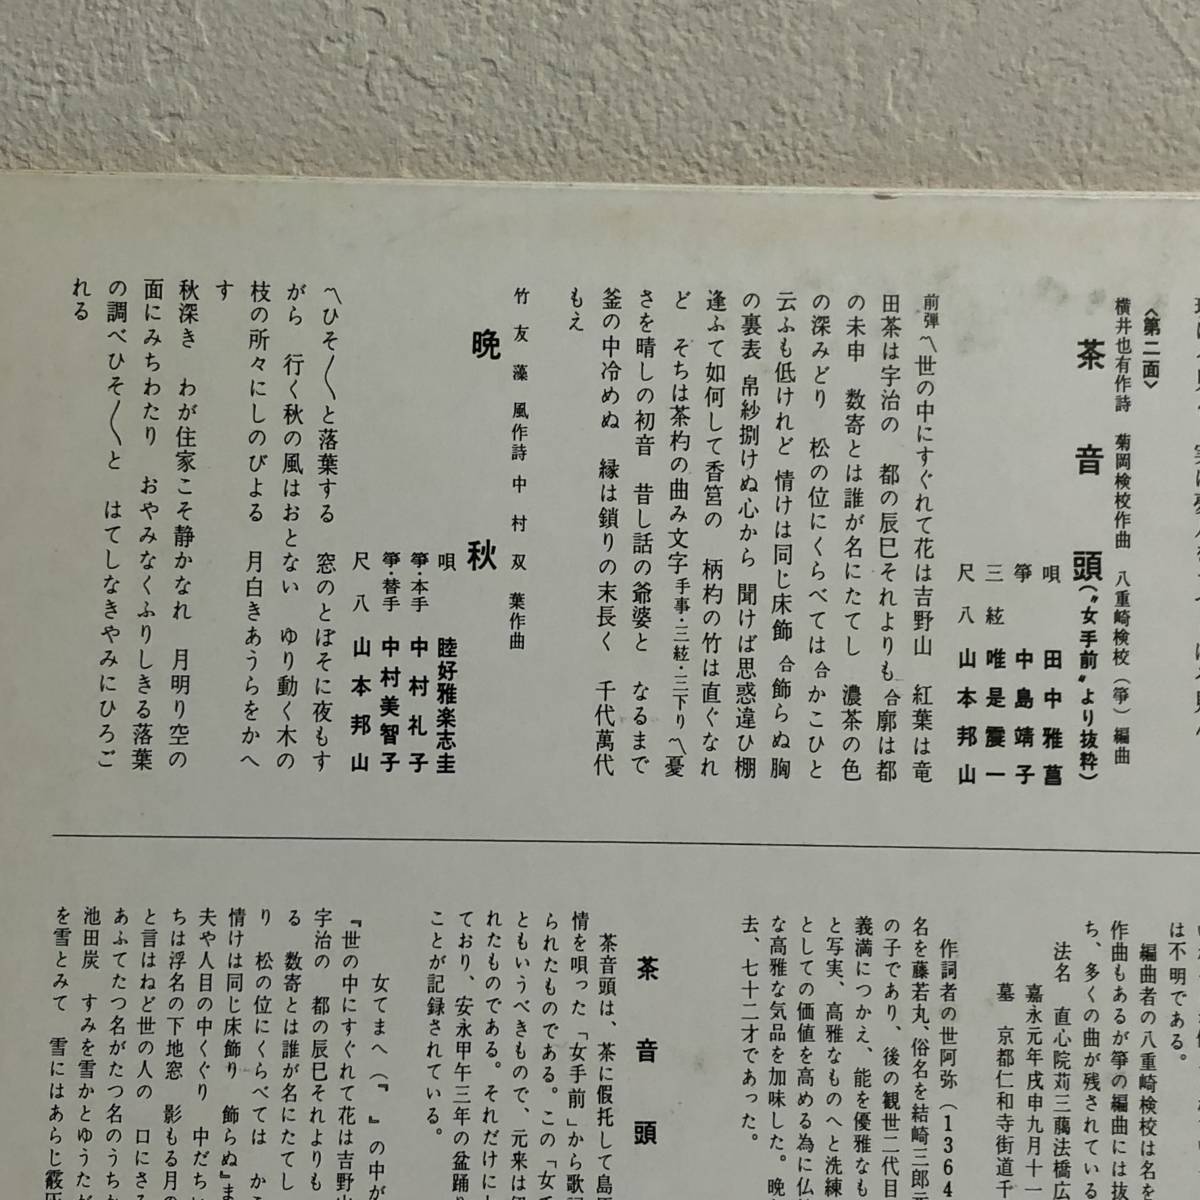 〈第二面〉
横井也有作詩 菊岡検校作曲 八重崎検校(箏)編曲
茶音頭(〝女手前〟より抜粋)
唄 田中雅菖
箏 中島靖子
三絃 唯是震一
尺八 山本邦山
前弾〽世の中にすぐれて花は吉野山 紅葉は竜
田茶は宇治の 都の辰巳それよりも合廓は都
の未申 数寄とは誰が名にたてし 濃茶の色
の深みどり 松の位にくらべては合かこひと
云ふも低けれど 情けは同じ床飾合飾らぬ胸
の裏表 帛紗捌けぬ心から 聞けば思惑違ひ棚
逢ふて如何して香筥の 柄杓の竹は直ぐなれ
ど そちは茶杓の曲み文字 手事・三絃・三下り〽憂
さを晴しの初音 昔し話の爺婆と なるまで
釜の中冷めぬ 縁は鎖りの末長く 千代萬代
もえ
竹友藻風作詩 中村双葉作曲
晩秋
唄 睦好雅楽志圭
箏・本手 中村礼子
箏・替手 中村美智子
尺八 山本邦山
〽ひそ〱と落葉する 窓のとぼそに夜もす
がら 行く秋の風はおとない ゆり動く木の
枝の所々にしのびよる 月白きあうらをかへ
す
秋深き わが住家こそ静かなれ 月明り空の
面にみちわたり おやみなくふりしきる落葉
の調べひそ〱と はてしなきやみにひろご
れる
は不明である。
編曲者の八重崎検校は名を
作曲もあるが箏の編曲には抜
ち、多くの曲が残されている
法名 直心院苅三蕅法橋広
嘉永元年戌申九月十一
墓 京都仁和寺街道千
作詞者の世阿弥(1364
名を藤若丸、俗名を結崎三郎元
の子であり、後の観世二代目
義満につかえ、能を優雅なも
と写実、高雅なものへと洗練
としての価値を高める為に仏
な高雅な気品を加味した。晩
去、七十二才であった。
茶音頭
茶音頭は、茶に假托して島原
情を唄った「女手前」から歌詞
られたものである。この「女手
ともいうべきもので、元来は
れたものである。それだけに
ており、安永甲午三年の盆踊り
ことが記録されている。
女てまへ(『 』の中が
『世の中にすぐれて花は吉野山
宇治の 都の辰巳それよりも
る 数寄とは誰が名にたてし
り 松の位にくらべては かこ
情けは同じ床飾り 飾らぬ』ま
夫や人目の中くぐり 中だちい
ちは浮名の下地窓 影もる月の
と言はねど世の人の 口にさる
あふてたつ名がたつ名のうちか
池田炭 すみを雪かとゆうたが
を雪とみて 雪にはあらじ